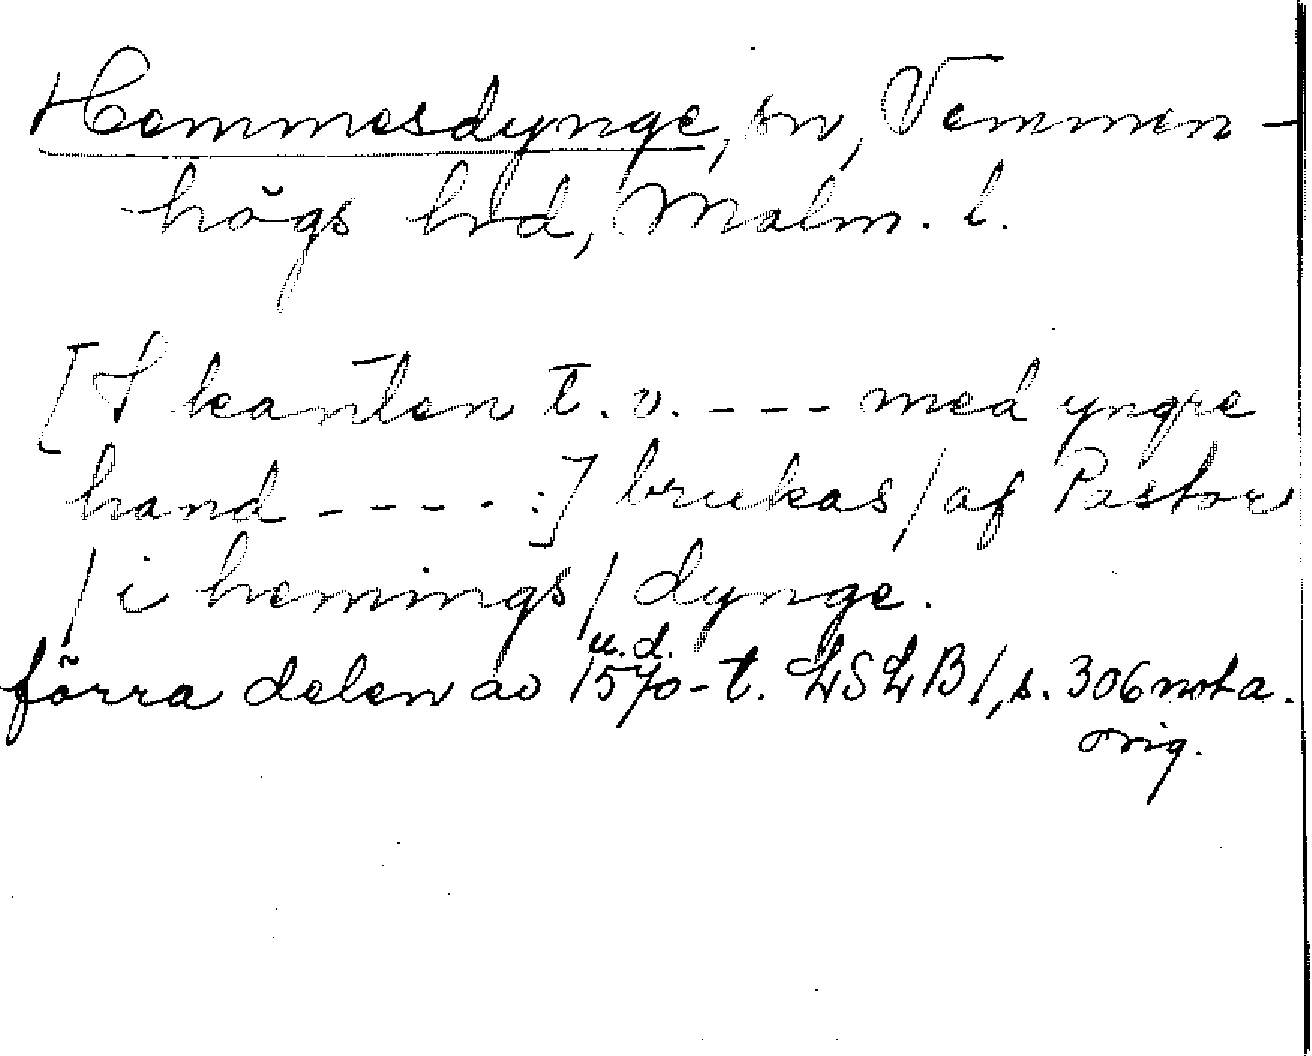 Hemmesdynge, sn, Vemmen-
högs hd, Malm. l.
[I kanten t. v. --- med yngre
hand ----:] brukas / af Pastor
/ i hemings / dynge.
u. d.
förra delen av 1570-t. LSLB 1, s. 306 not a.
orig.